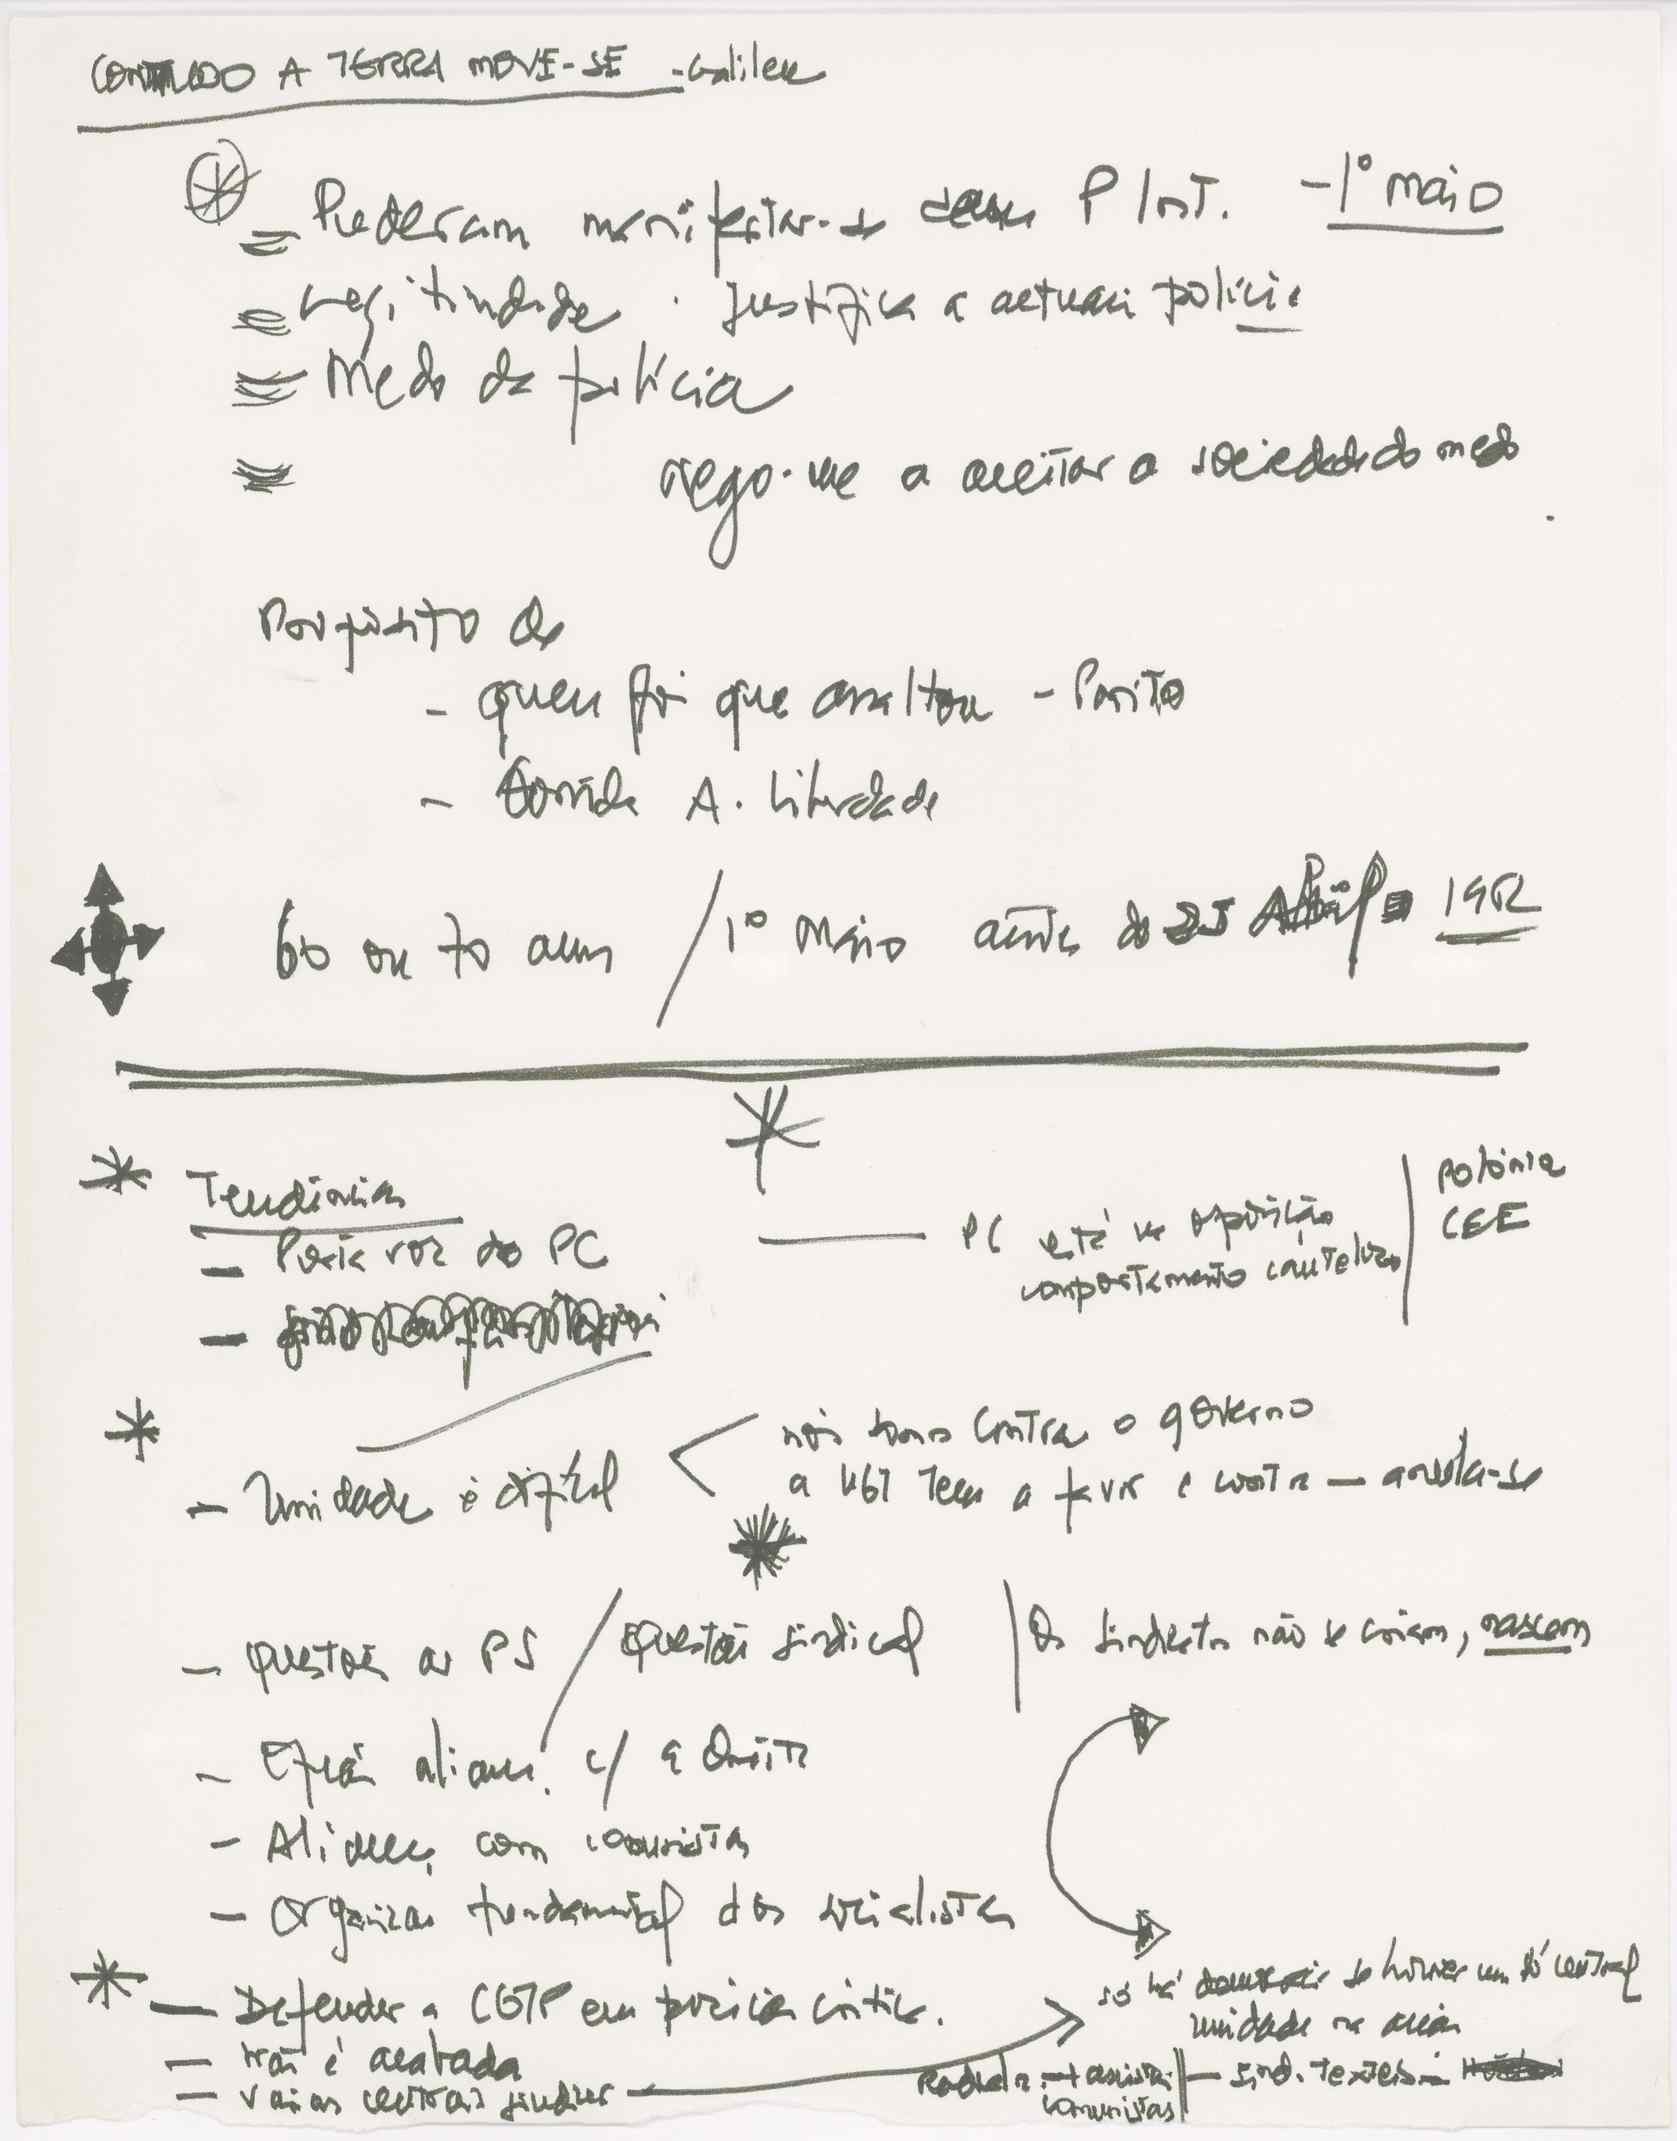 CONTUDO A TERRA MOVE-SE - Galileu
Puderam manifestar-se P Int. - 1º Maio
Legitimidade. Justifica a actuar polícia
Medo da polícia
Nego-me a aceitar a sociedade do medo.
Propósito de
- quem foi que assaltou - Porto
- A. Liberdade
60 ou 70 anos / 1º Maio antes do 25 Abril 1982
Tendências
- Porta voz do PC — PC está na oposição comportamento cauteloso | Polónia CEE
- Unidade é difícil < nós somos contra o governo
a UGT tem a favor e contra - anula-se
- questões ao PS / questão sindical | Os sindicatos não se criam, nascem
- alianç. c/ a Direita
- Aliança com comunistas
- Organizar fundamental dos socialistas
- Defender a CGTP em posição crítica.
só há se houver um só central
unidade na acção
- não é acabada
- várias centrais sindicais
- sind. texteis
comunistas